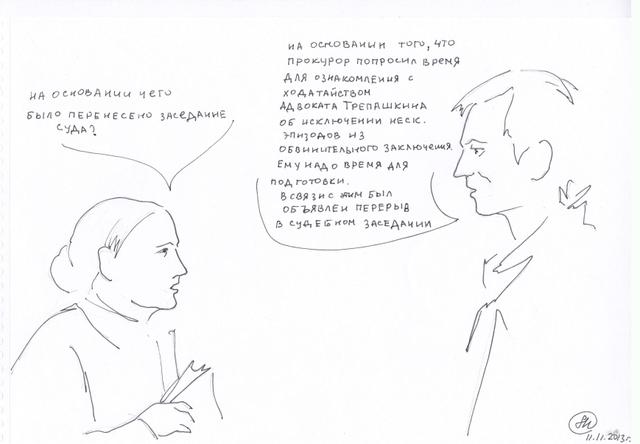 НА ОСНОВАНИИ ЧЕГО
БЫЛО ПЕРЕНЕСЕНО ЗАСЕДАНИЕ
СУДА?
НА ОСНОВАНИИ ТОГО, ЧТО
ПРОКУРОР ПОПРОСИЛ ВРЕМЯ
ДЛЯ ОЗНАКОМЛЕНИЯ С
ХОДАТАЙСТВОМ
АДВОКАТА ТРЕПАШКИНА
ОБ ИСКЛЮЧЕНИИ НЕСК.
ЭПИЗОДОВ ИЗ
ОБВИНИТЕЛЬНОГО ЗАКЛЮЧЕНИЯ.
ЕМУ НАДО ВРЕМЯ ДЛЯ
ПОДГОТОВКИ.
В СВЯЗИ С ЭТИМ БЫЛ
ОБЪЯВЛЕН ПЕРЕРЫВ
В СУДЕБНОМ ЗАСЕДАНИИ
11.11.2013 г.